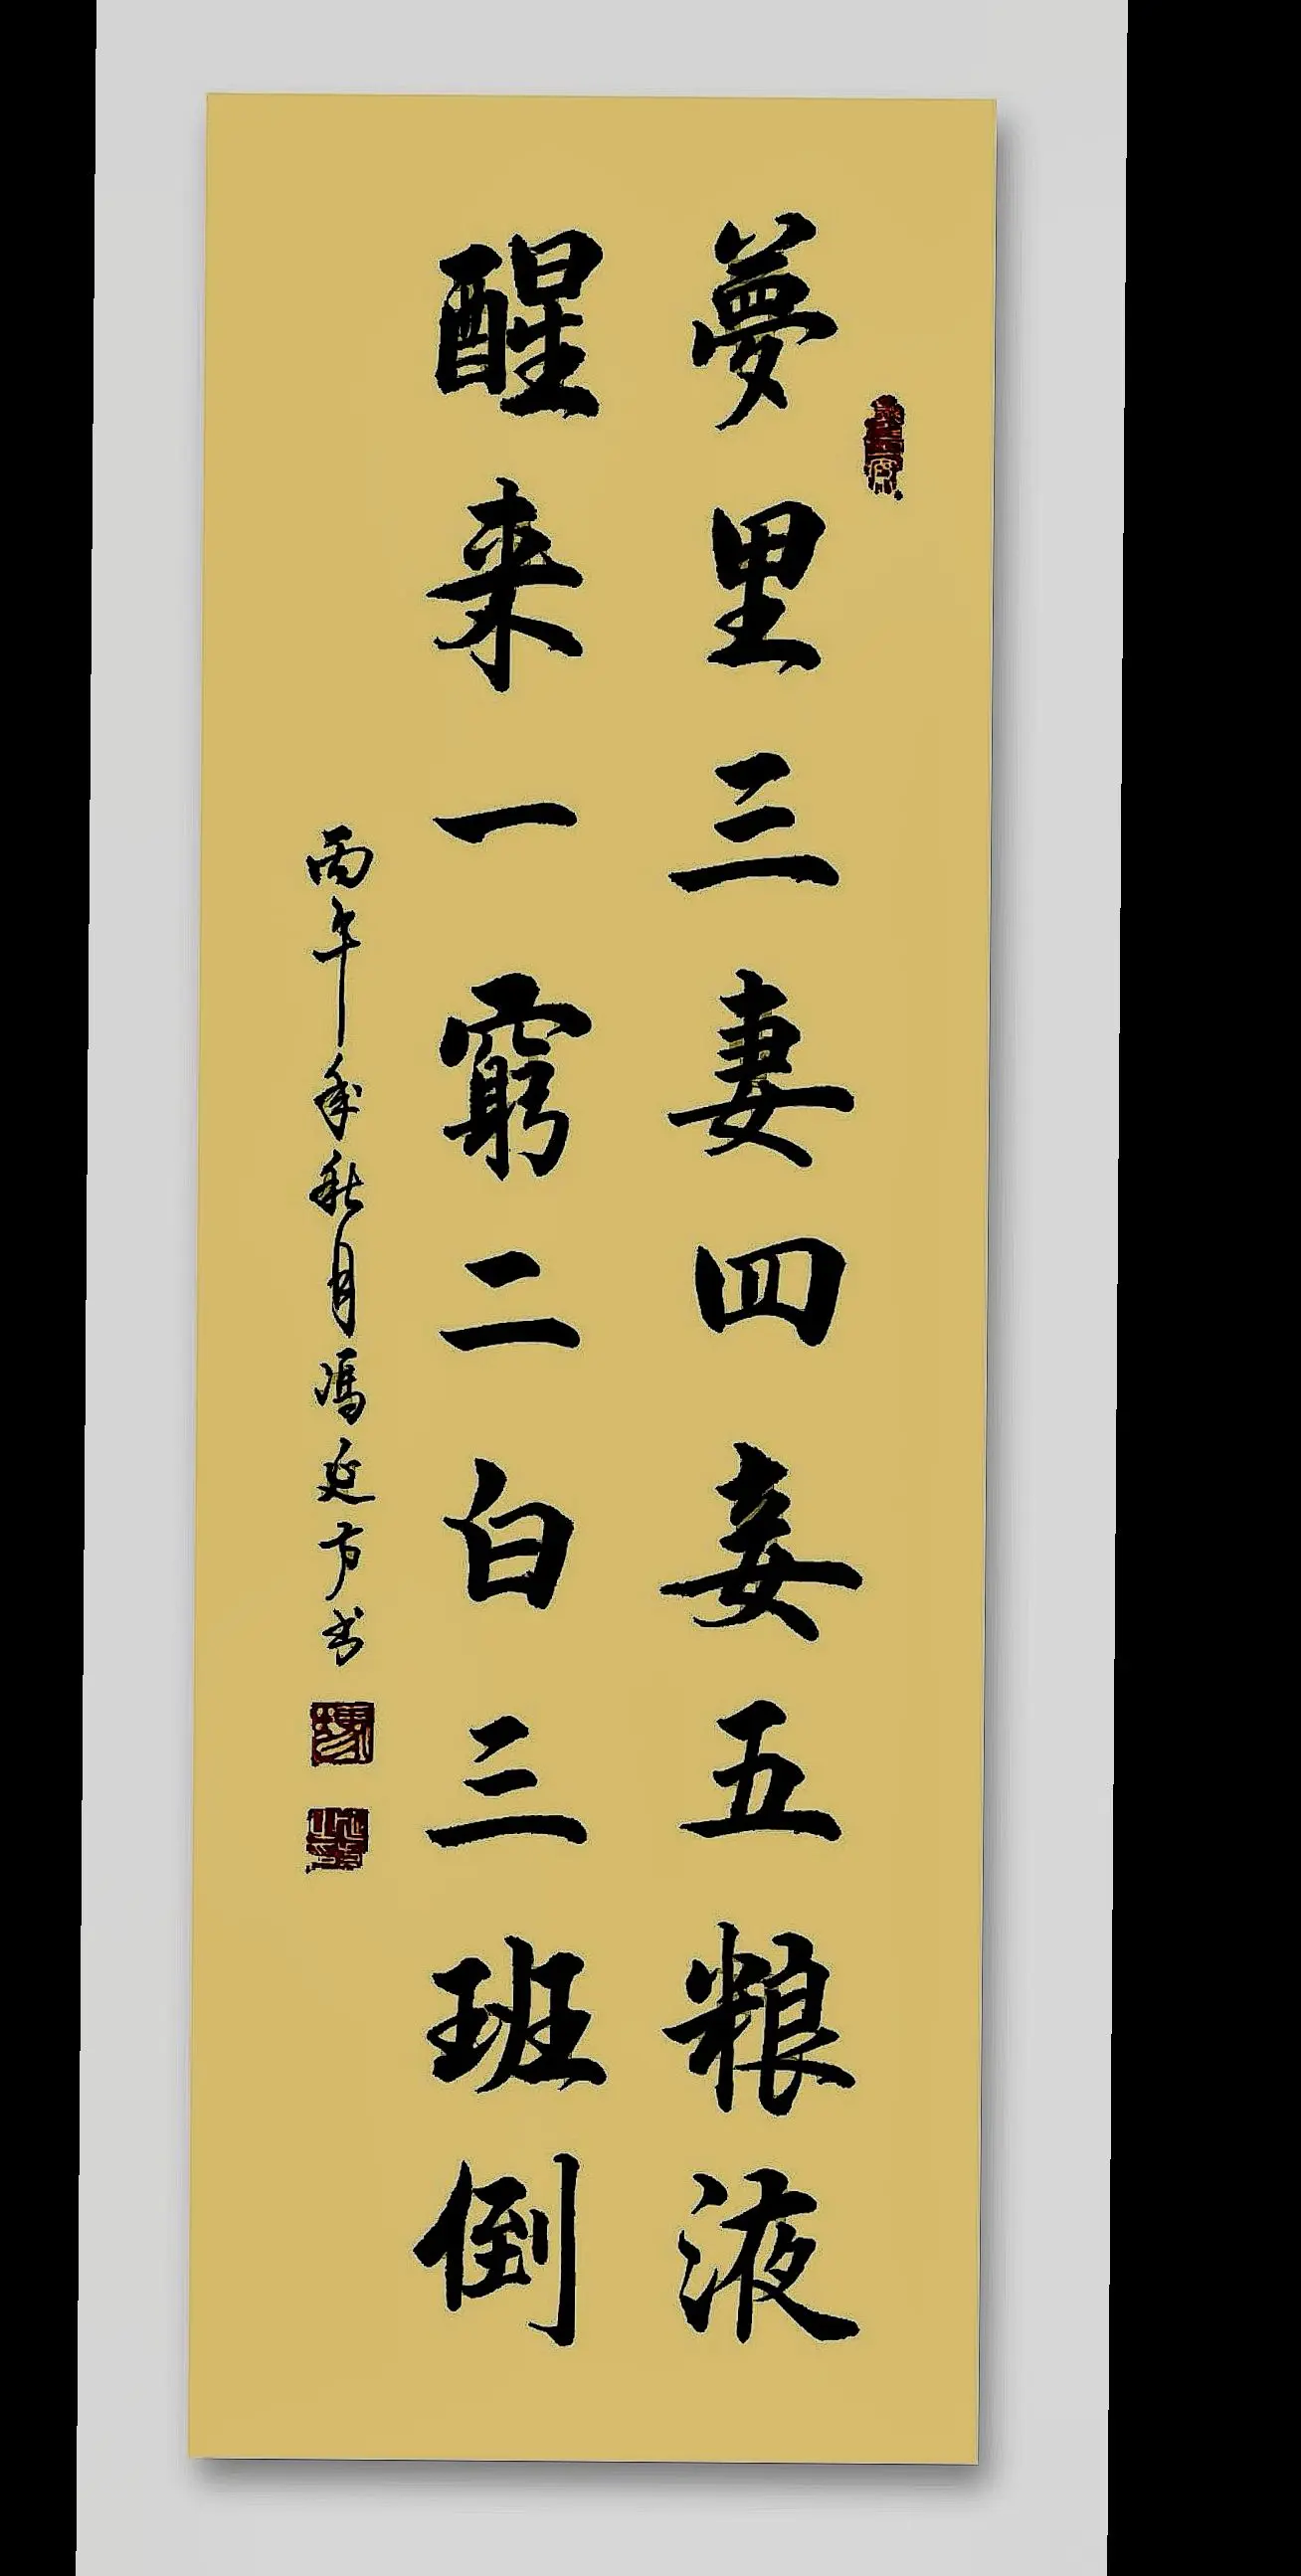 夢里三妻四妾五粮液
醒来一窮二白三班倒
丙午年秋月冯延方书